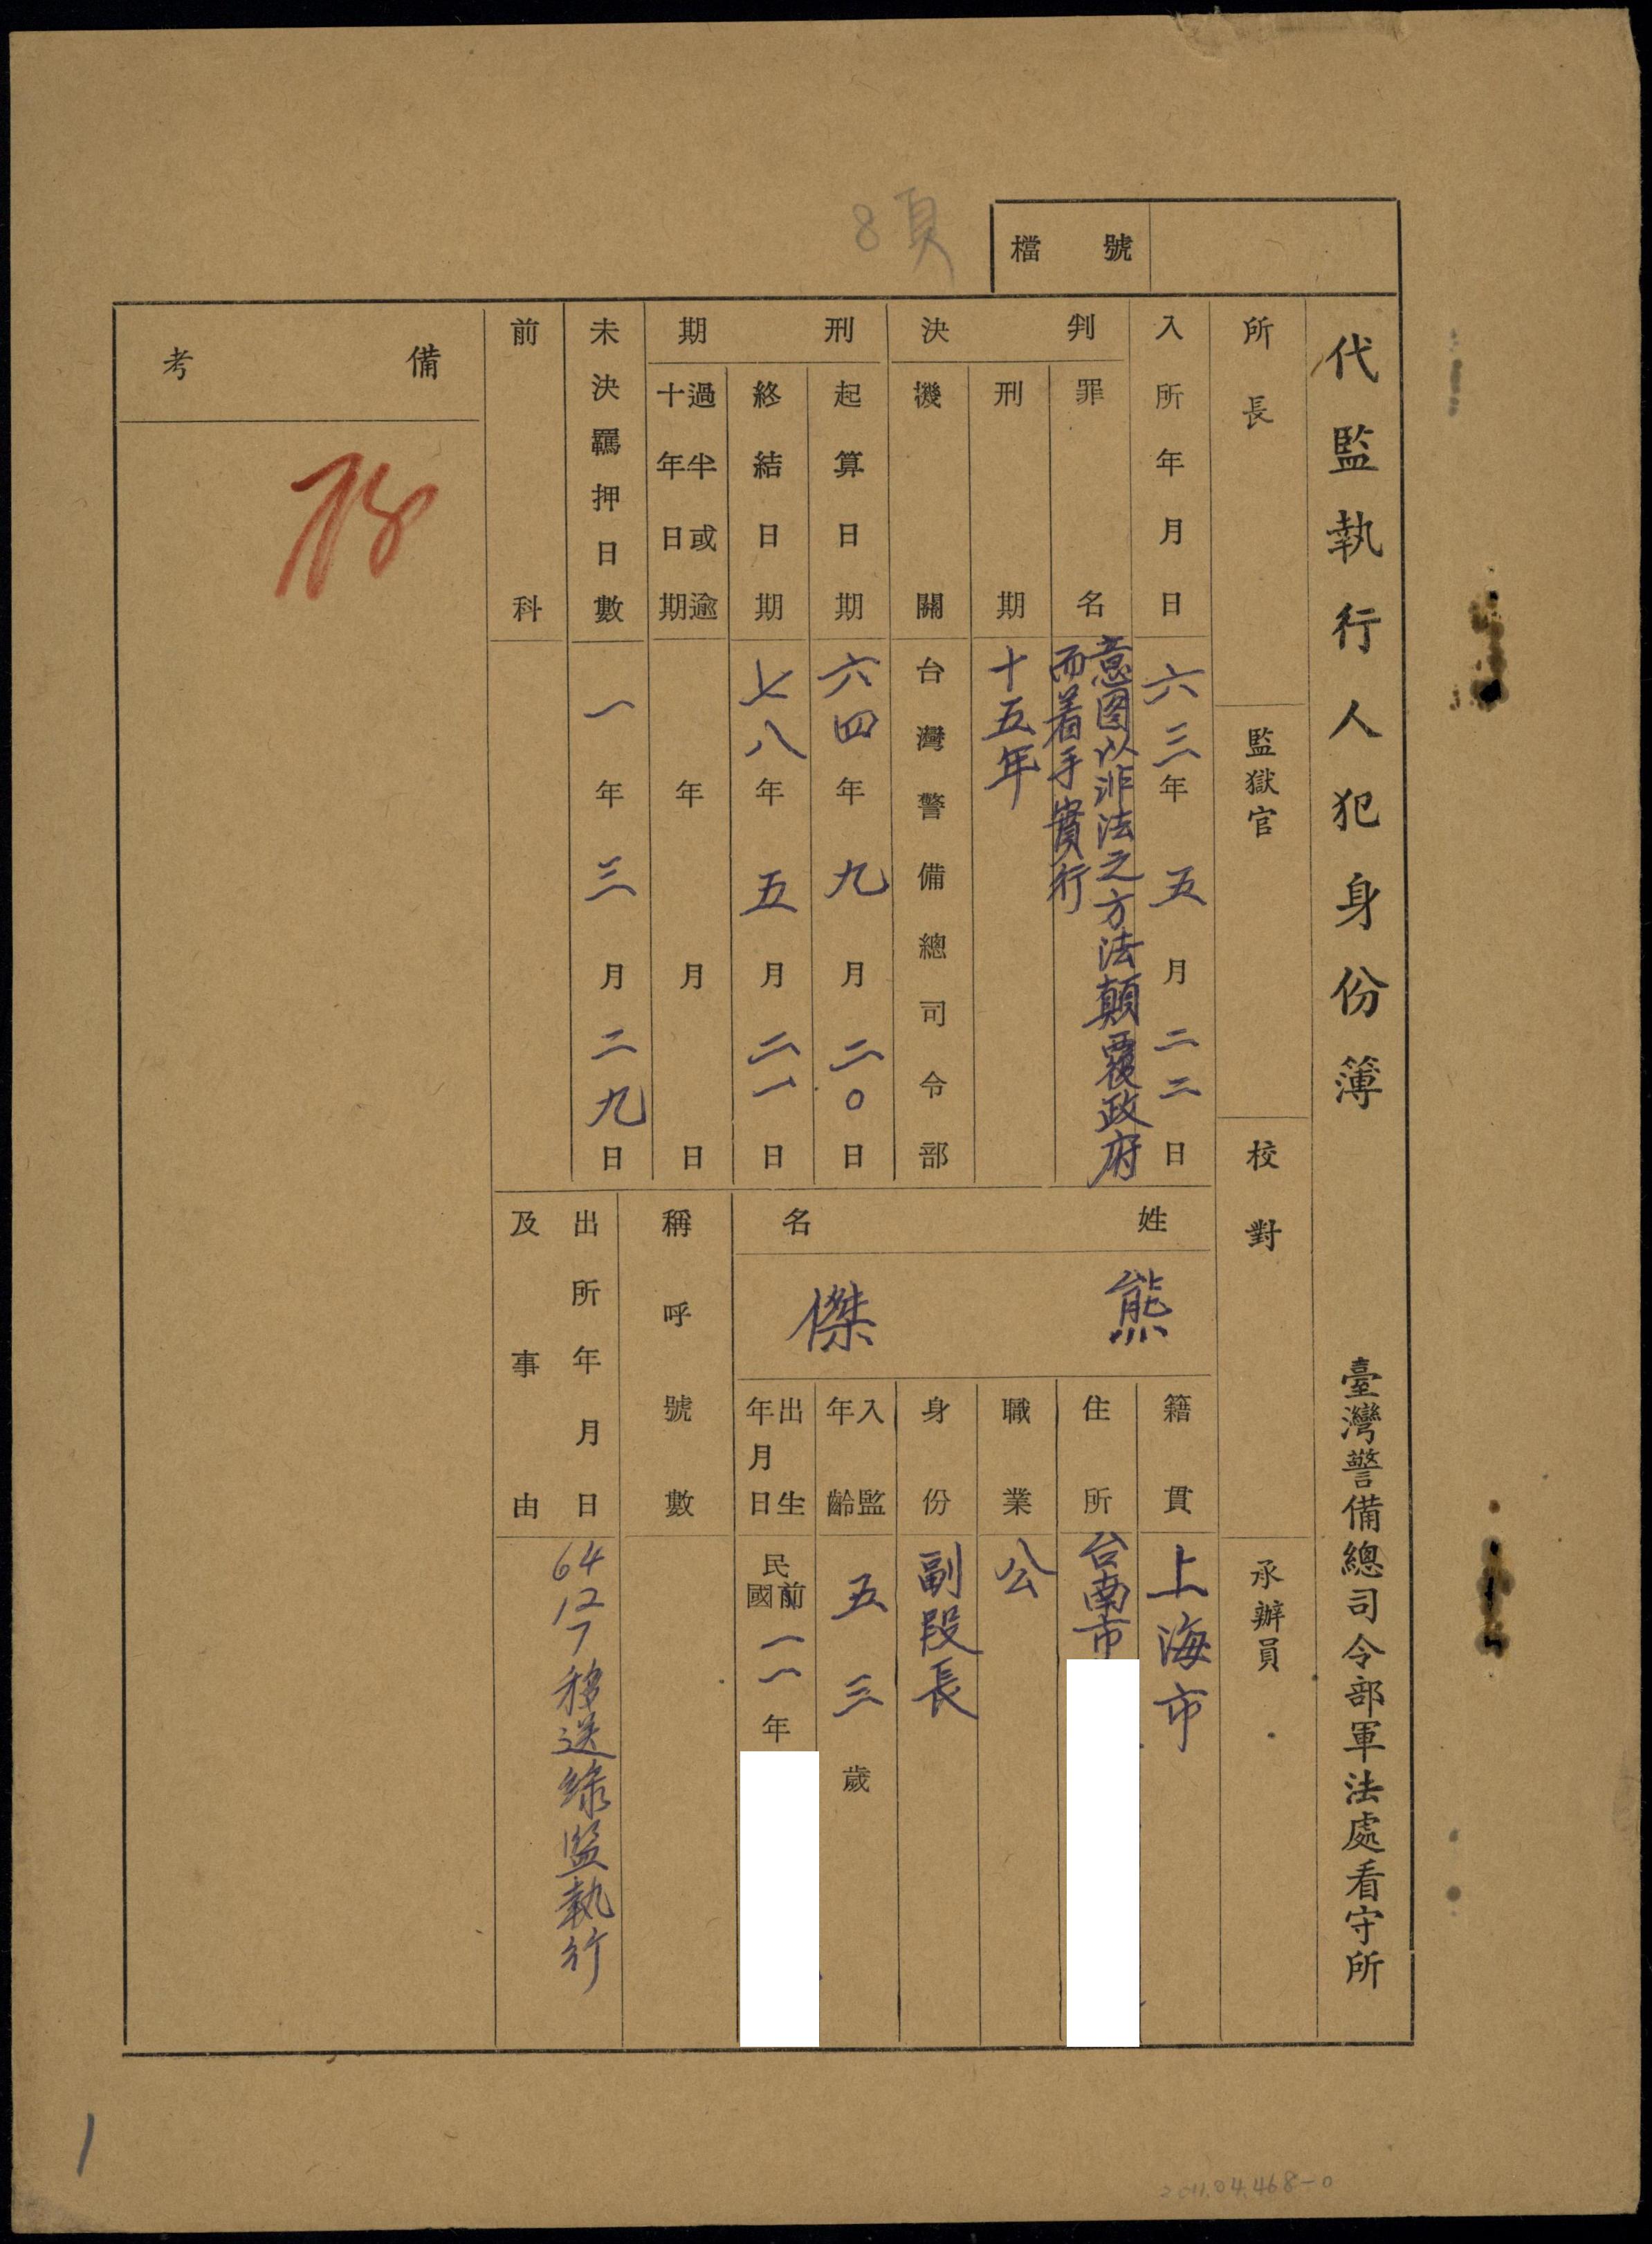 8頁
檔號
代監執行人犯身份簿 臺灣警備總司令部軍法處看守所
所長 監獄官 校對 承辦員
入所年月日 六三年五月二二日
判決
罪名 意図以非法之方法顛覆政府
而着手實行
刑期 十五年
機關 台灣警備總司令部
刑期
起算日期 六四年九月二〇日
終結日期 七八年五月二一日
過半或逾
十年年日期 年 月 日
未決羈押日數 一年三月二九日
前科
姓名
熊傑
籍貫 上海市
住所 台南市
職業 公
身份 副段長
入監
年齡 五三歲
出生
年月日 民國前 一一年
稱呼號數
出所年月日
及事由
64
12
7
移送綠監執行
備考
78
1
2011.04.468-0